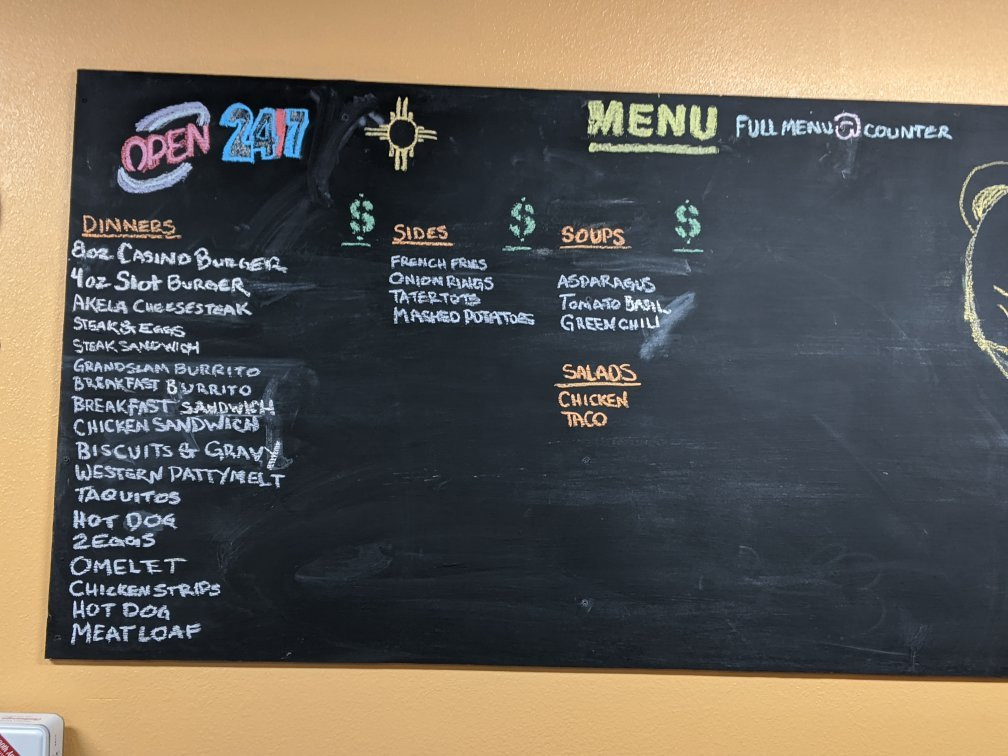 OPEN 24/7
MENU
FULL MENU @ COUNTER
DINNERS
$
8oz CASINO BURGER
4oz Slot BURGER
AKELA CHEESESTEAK
STEAK & EGGS
STEAK SANDWICH
GRANDSLAM BURRITO
BREAKFAST BURRITO
BREAKFAST SANDWICH
CHICKEN SANDWICH
BISCUITS & GRAVY
WESTERN PATTYMELT
TAQUITOS
HOT DOG
2 EGGS
OMELET
CHICKEN STRIPS
HOT DOG
MEATLOAF
SIDES
$
FRENCH FRIES
ONION RINGS
TATERTOTS
MASHED POTATOES
SOUPS
$
ASPARAGUS
TOMATO BASIL
GREEN CHILI
SALADS
CHICKEN
TACO